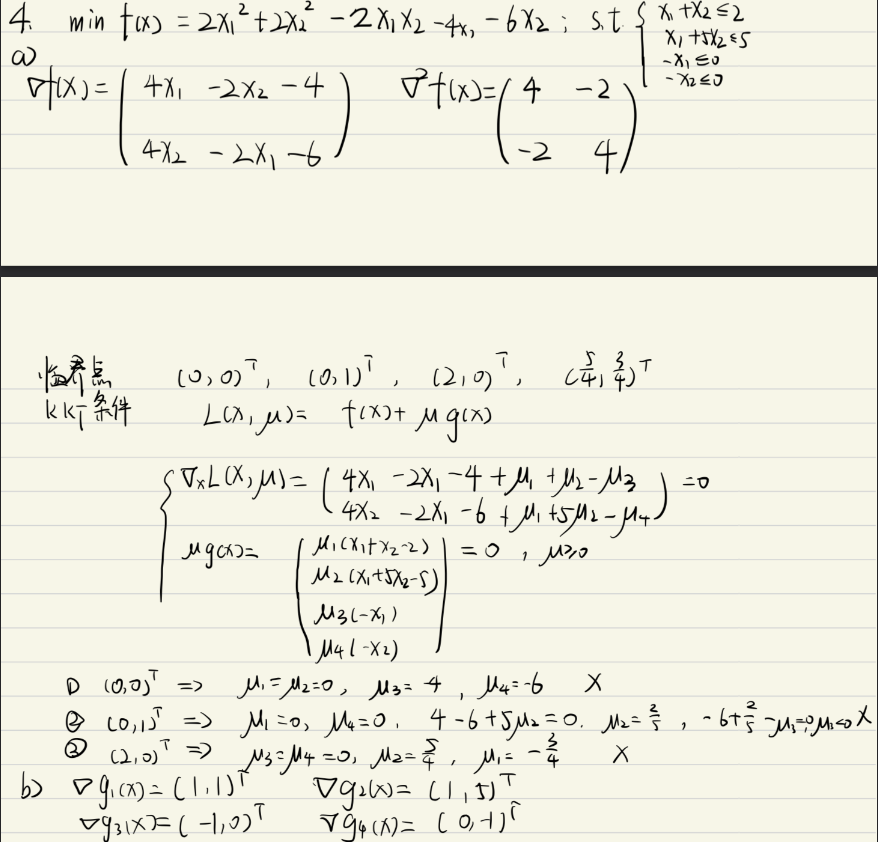 4. min f(x) = 2x₁² + 2x₂² - 2x₁x₂ - 4x₁ - 6x₂ ; s.t. { x₁ + x₂ ≤ 2
x₁ + 5x₂ ≤ 5
-x₁ ≤ 0
-x₂ ≤ 0
a)
∇f(x) = ( 4x₁ - 2x₂ - 4 ∇²f(x) = ( 4 -2
4x₂ - 2x₁ - 6 ) -2 4 )
临界点 (0,0)ᵀ, (0,1)ᵀ, (2,0)ᵀ, (5/4, 3/4)ᵀ
KKT条件 L(x,μ) = f(x) + μg(x)
{ ∇ₓL(x,μ) = ( 4x₁ - 2x₁ - 4 + μ₁ + μ₂ - μ₃ ) = 0
4x₂ - 2x₁ - 6 + μ₁ + 5μ₂ - μ₄
μg(x) = ( μ₁(x₁+x₂-2) ) = 0 , μ≥0
μ₂(x₁+5x₂-5)
μ₃(-x₁)
μ₄(-x₂)
① (0,0)ᵀ => μ₁=μ₂=0, μ₃=-4, μ₄=-6 X
② (0,1)ᵀ => μ₁=0, μ₄=0. 4-6+5μ₂=0. μ₂=2/5, -6+2/5-μ₃=0, μ₃<0 X
③ (2,0)ᵀ => μ₃=μ₄=0, μ₂=5/4, μ₁=-3/4 X
b) ∇g₁(x) = (1,1)ᵀ ∇g₂(x) = (1,5)ᵀ
∇g₃(x) = (-1,0)ᵀ ∇g₄(x) = (0,-1)ᵀ